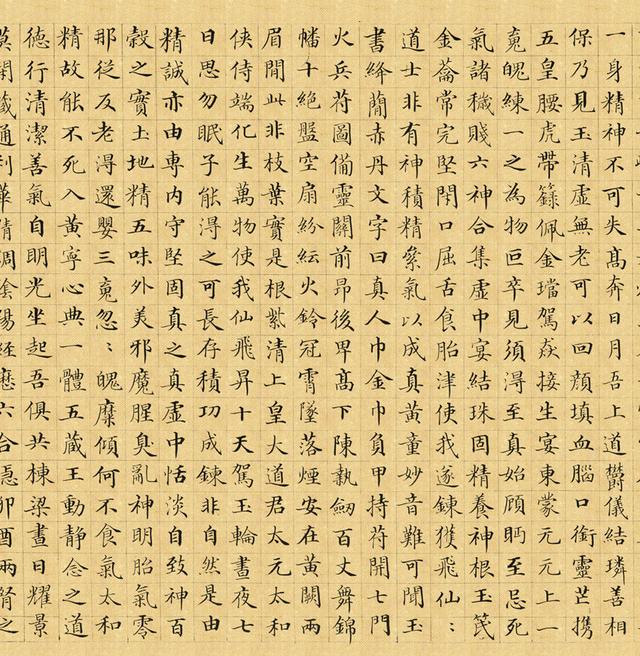 一身精神不可失高奔日月吾上道欝儀結璘善相
保乃見玉清虛無老可以回顏填血腦口銜靈芒携
五皇腰虎帶籙佩金璫駕焱接生宴東蒙元元上一
䰟魄練一之為物叵卒見須得至真始顧眄至忌死
氣諸穢賤六神合集虛中宴結珠固精養神根玉笢
金蘥常完堅閇口屈舌食胎津使我遂鍊獲飛仙：
道士非有神積精絫氣以成真黃童妙音難可聞玉
書絳蕑赤丹文字曰真人巾金巾負甲持苻開七門
火兵苻圖備靈關前昂後卑高下陳執劒百丈舞錦
幡十絕盤空扇紛紜火鈴冠霄墜落煙安在黃闕兩
眉間此非枝葉實是根紫清上皇大道君太元太和
俠侍端化生萬物使我仙飛昇十天駕玉輪晝夜七
日思勿眠子能得之可長存積功成鍊非自然是由
精誠亦由專內守堅固真之真虛中恬淡自致神百
榖之實土地精五味外美邪魔腥臭亂神明胎氣零
那從反老得還嬰三䰟忽：魄糜傾何不食氣太和
精故能不死入黃寧心典一體五藏王動靜念之道
德行清潔善氣自明光坐起吾俱共棟梁晝日耀景
莫閇藏通利華精調陰陽經歷六合隱卯酉兩腎之